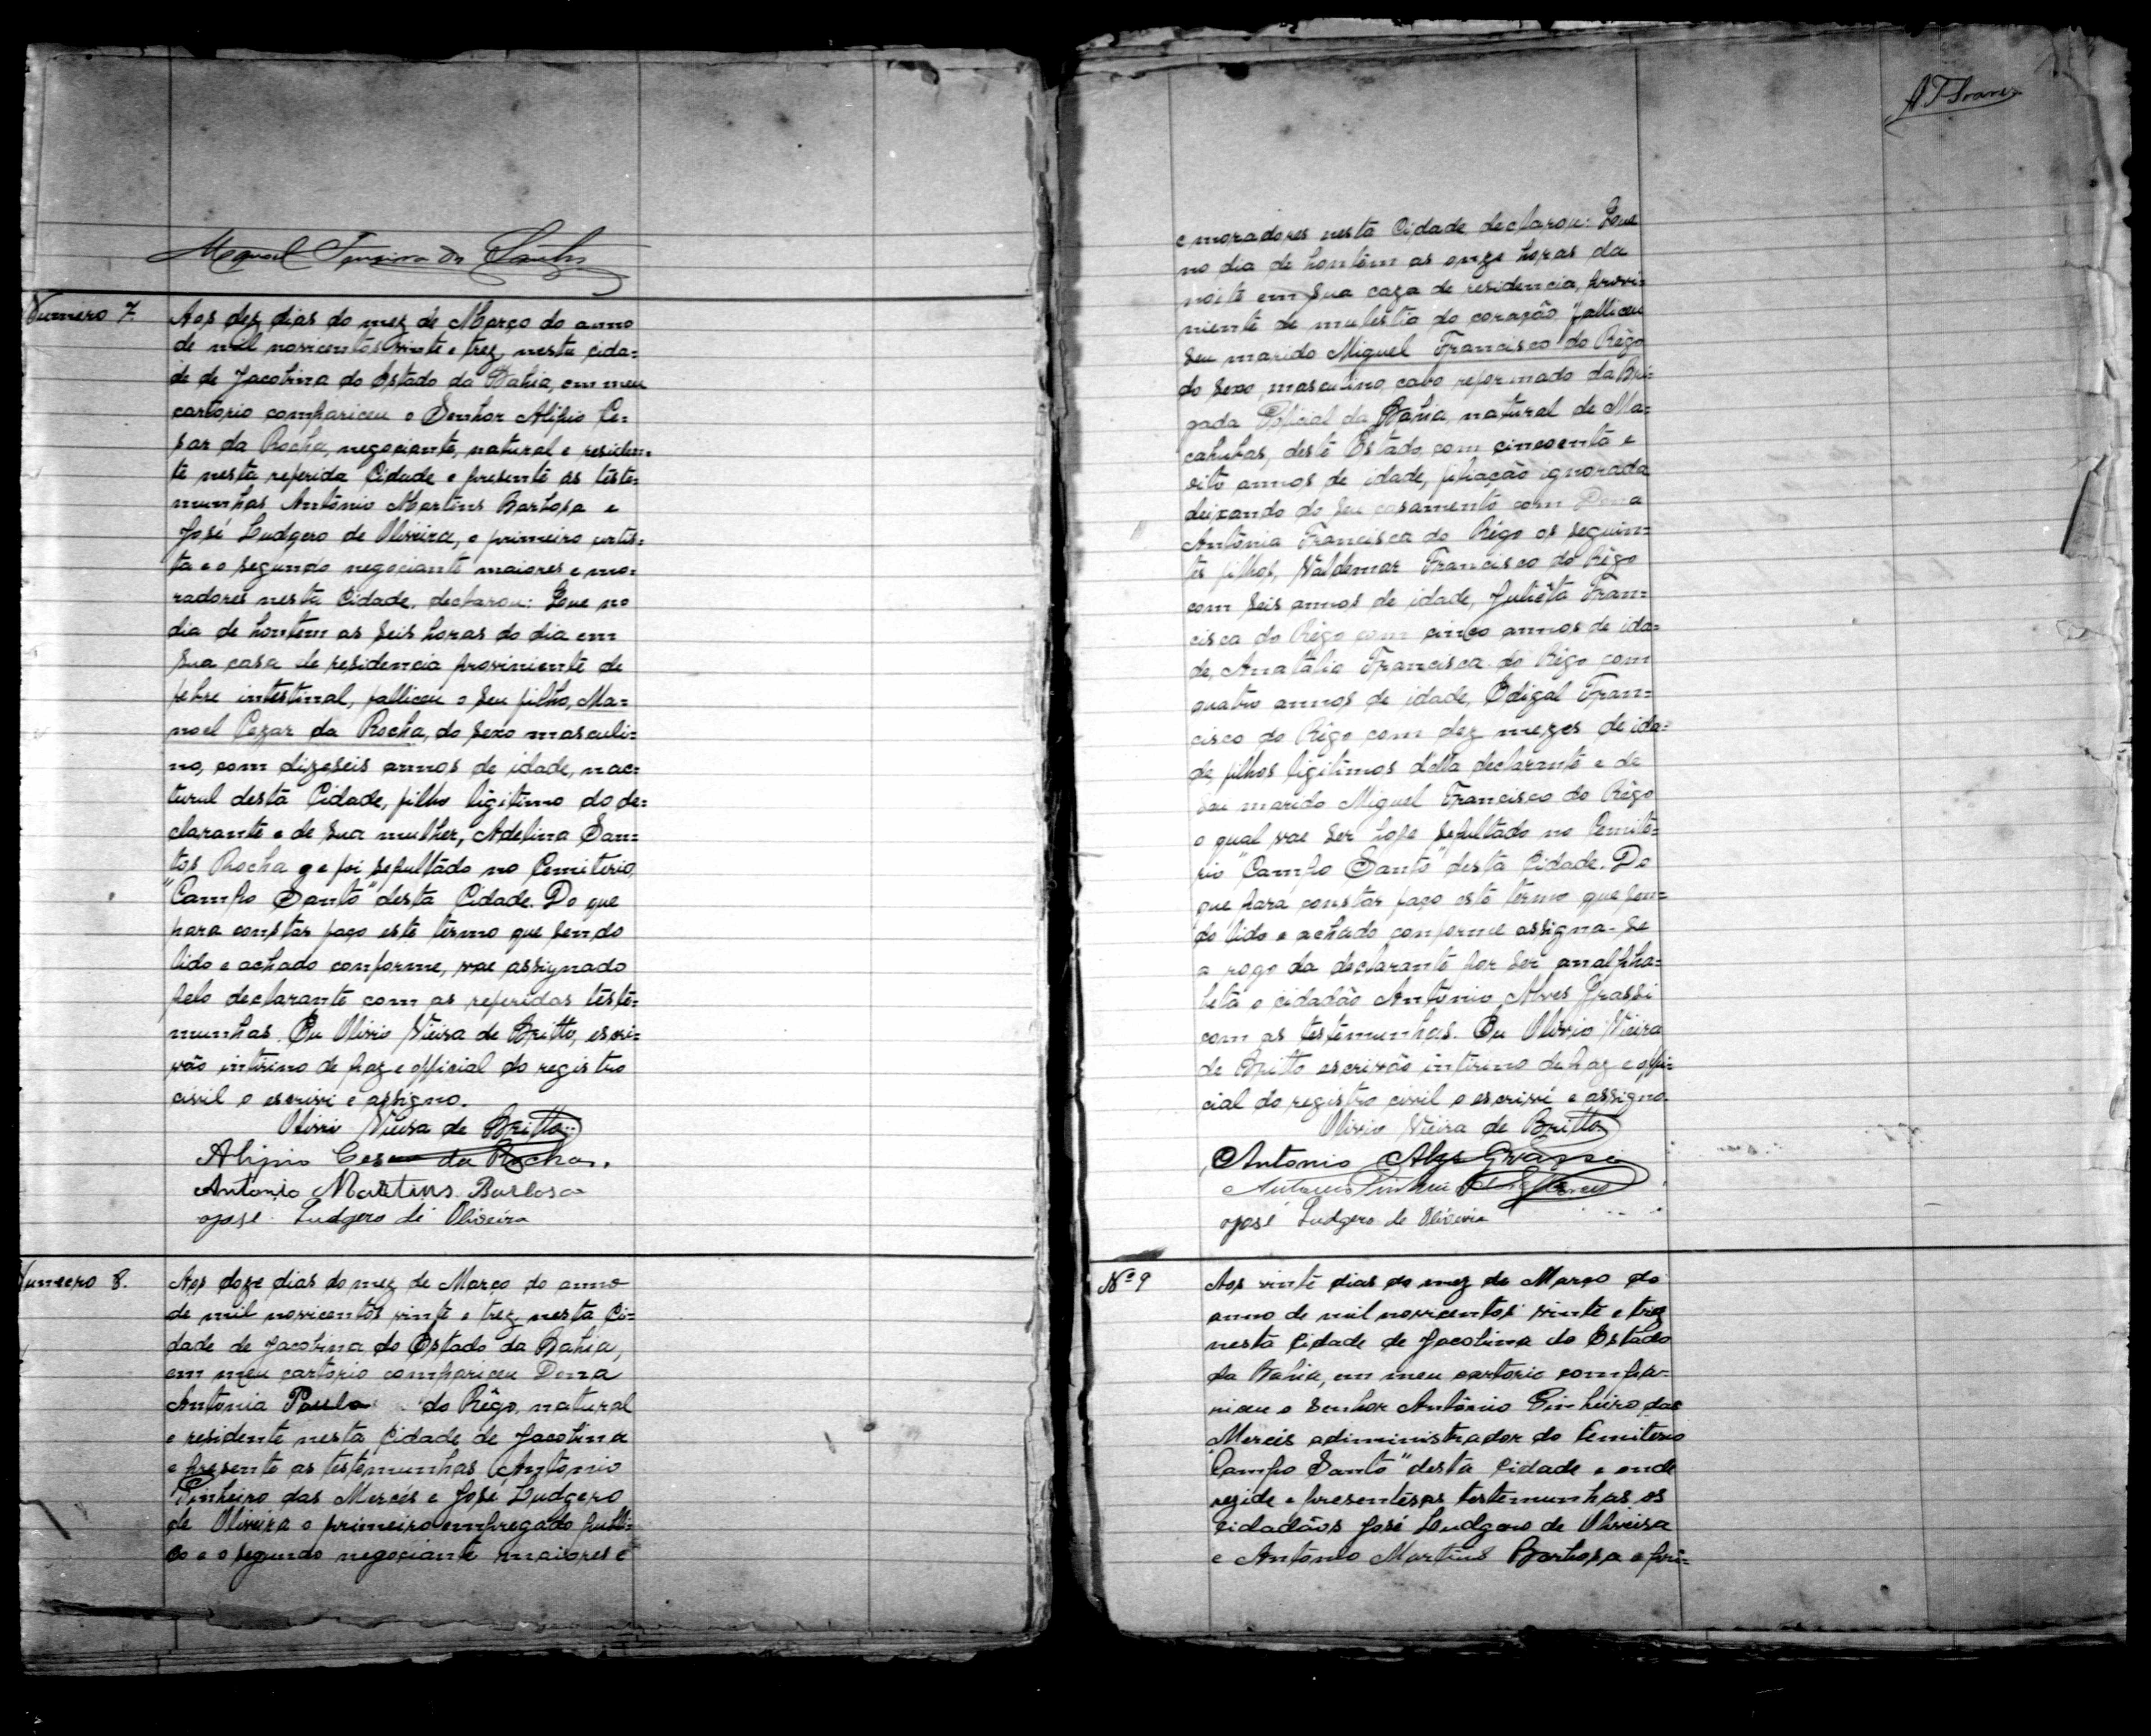 Manoel Ferreira dos Santos
Numero 7.
Aos dez dias do mez de Março do anno
de mil novicentos vinte e trez, nesta cida=
de de Jacobina do Estado da Bahia, em meu
cartorio compariceu o Senhor Alipio Ce=
sar da Rocha, negociante, natural e residen=
te nesta referida Cidade e presente as teste=
munhas Antônio Martins Barbosa e
José Ludgero de Oliveira, o primeiro artis=
ta e o segundo negociante maiores e mo=
radores nesta Cidade, declarou: Que no
dia de hontem as seis horas do dia em
sua casa de residencia proviniente de
febre intestinal, falliceu o seu filho, Ma=
noel Cezar da Rocha, do sexo masculi=
no, com dizeseis annos de idade, nac=
turul desta Cidade, filho ligitimo do de=
clarante e de sua mulher, Adelina San=
tos Rocha q e foi sepultado no Cemiterio
"Campo Santo" desta Cidade. Do que
para constar faço este termo que sendo
lido e achado conforme, vae assignado
pelo declarante com as referidas teste=
munhas. Eu Olivio Vieira de Britto, escri=
vão intirino de paz e official do registro
civil o escrivi e assigno.
Olivio Vieira de Britto
Alipio Cesar da Rocha.
Antonio Martins Barbosa
José Ludgero de Oliveira
Numero 8.
Aos doze dias do mez de Março do anno
de mil novicentos vinte e trez, nesta Ci=
dade de Jacobina do Estado da Bahia,
em meu cartorio compariceu Dona
Antonia Paula do Rêgo, natural
e residente nesta Cidade de Jacobina
e presente as testemunhas Antonio
Pinheiro das Mercês e José Ludgero
de Oliveira o primeiro empregado publi=
co e o segundo negociante maiores e
A T Soares
e moradores nesta Cidade declarou: Que
no dia de hontem as onze horas da
noite em sua caza de residencia, provi=
niente de mulestia do coração falliceu
seu marido Miguel Francisco do Rêgo
do sexo masculino, cabo reformado da Bri=
gada Policial da Bahia, natural de Ma=
cahubas, deste Estado, com cincoenta e
oito annos de idade, filiação ignorada
deixando do seu casamento com Dona
Antônia Francisca do Rêgo os seguin=
tes filhos, Valdemar Francisco do Rêgo
com seis annos de idade, Juliêta Fran=
cisca do Rêgo com cinco annos de ida=
de, Anatalia Francisca do Rêgo com
quatro annos de idade, Edigal Fran=
cisco do Rêgo com dez mezes de ida=
de, filhos ligitimos della declarante e de
seu marido Miguel Francisco do Rêgo
o qual vae ser hoje sepultado no Cemite=
rio "Campo Santo" desta Cidade. Do
que para constar faço este termo que sen=
do lido e achado conforme assigna-se
a rogo da declarante por ser analpha=
beta o cidadão Antônio Alves Grassi
com as testemunhas. Eu Olivio Vieira
de Britto escrivão intirino de paz e offi=
cial do registro civil o escrivi e assigno.
Olivio Vieira de Britto
Antonio Alvs Grassi
Antonio Pinheiro das Mercês
José Ludgero de Oliveira
Nº 9
Aos vinte dias do mez de Março do
anno de mil novicentos vinte e trez
nesta Cidade de Jacobina do Estado
da Bahia, em meu cartorio compa=
riceu o Senhor Antônio Pinheiro das
Mercês adiministrador do Cemiterio
"Campo Santo" desta Cidade e onde
rezide e presentes as testemunhas os
Cidadãos José Ludgero de Oliveira
e Antônio Martins Barbosa o pri=